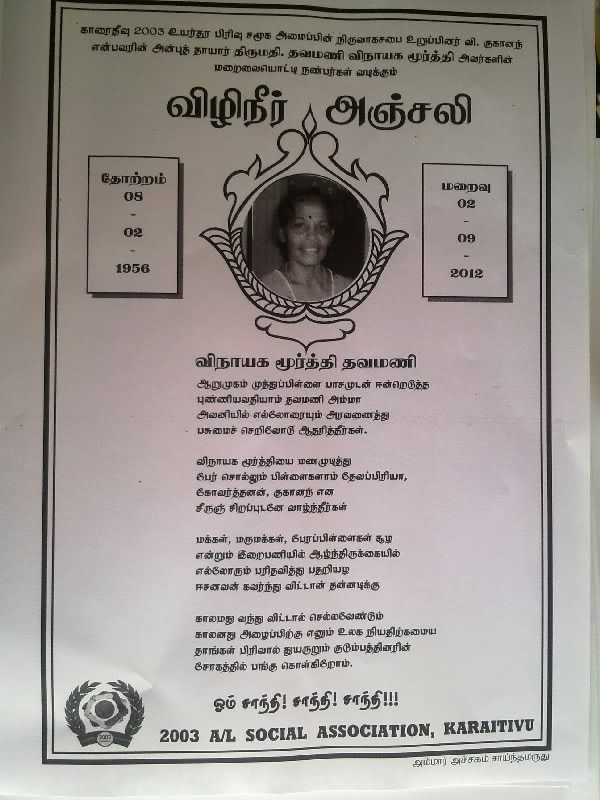 காரைதீவு 2003 உயர்தர பிரிவு சமூக அமைப்பின் நிருவாகசபை உறுப்பினர் வி. குகானந்
என்பவரின் அன்புத் தாயார் திருமதி. தவமணி விநாயக மூர்த்தி அவர்களின்
மறைவையொட்டி நண்பர்கள் வடிக்கும்
விழிநீர் அஞ்சலி
தோற்றம்
08
-
02
-
1956
மறைவு
02
-
09
-
2012
விநாயக மூர்த்தி தவமணி
ஆறுமுகம் முத்துப்பிள்ளை பாசமுடன் ஈன்றெடுத்த
புண்ணியவதியாம் தவமணி அம்மா
அவனியில் எல்லோரையும் அரவணைத்து
பசுமைச் செறிவோடு ஆதரித்தீர்கள்.
விநாயக மூர்த்தியை மணமுடித்து
பேர் சொல்லும் பிள்ளைகளாம் தேவப்பிரியா,
கோவர்த்தனன், குகானந் என
சீருஞ் சிறப்புடனே வாழ்ந்தீர்கள்
மக்கள், மருமக்கள், பேரப்பிள்ளைகள் சூழ
என்றும் இறைபணியில் ஆழ்ந்திருக்கையில்
எல்லோரும் பரிதவித்து பதறியழ
ஈசனவன் கவர்ந்து விட்டான் தன்னடிக்கு
காலமது வந்து விட்டால் செல்லவேண்டும்
காலனது அழைப்பிற்கு எனும் உலக நியதிற்கமைய
தாங்கள் பிரிவால் துயருறும் குடும்பத்தினரின்
சோகத்தில் பங்கு கொள்கிறோம்.
ஓம் சாந்தி! சாந்தி! சாந்தி!!!
2003
2003 A/L SOCIAL ASSOCIATION, KARAITIVU
அம்மார் அச்சகம் சாய்ந்தமருது